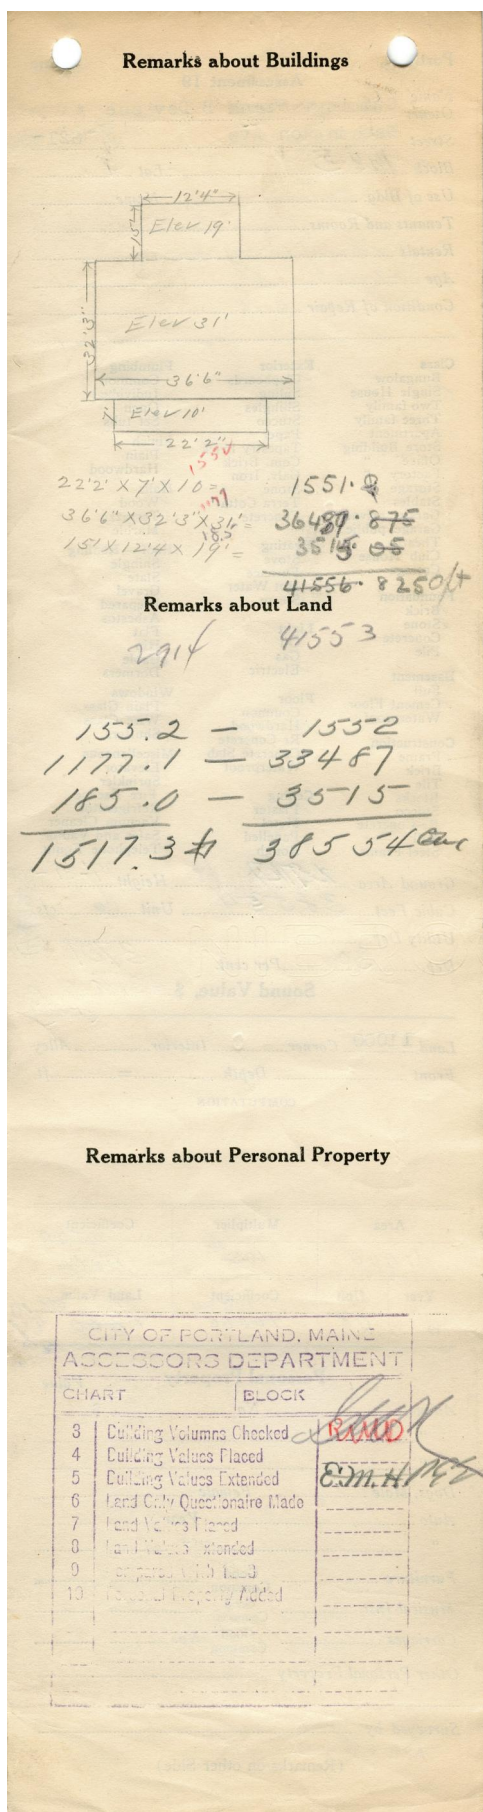 Remarks about Buildings
12'4"
15'
Elev 19'
32'3"
Elev 31'
36'6"
7'
Elev 10'
22'2"
1550
22'2' X 7' X 10 = 1551.8
1177
36'6" X 32'3" X 31' = 36489.875
185
15' X 12'4 X 19' = 3515.05
41556.8250/t
Remarks about Land
2914 41553
155.2 — 1552
1177.1 — 33487
185.0 — 3515
1517.3 # 38554
Remarks about Personal Property
CITY OF PORTLAND, MAINE
ASSESSORS DEPARTMENT
CHART BLOCK
3 Building Volumns Checked RMD
4 Building Values Placed
5 Building Values Extended E.M.H
6 Land Only Questionaire Made
7 Land Values Placed
8 Land Values Extended
9 Compared With
10 Personal Property Added